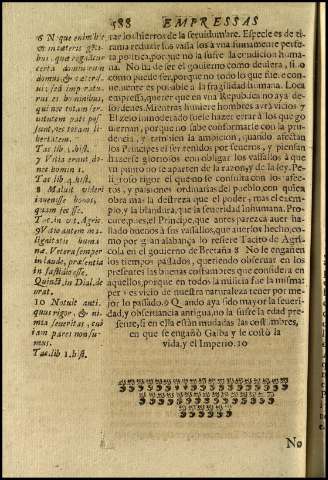 588 EMPRESSAS
6 Neque enim hic
ut in cæteris gẽti-
bus, quæ regnãtur
certa dominorum
domus, & cæteri ser-
vi: sed imperatu-
rus es hominibus,
qui nec totam ser-
vitutem pati pos-
sunt, nec totam li-
bertatem.
Tac. lib. 1. hist.
7 Vitia erunt do-
nec homines.
Tac. lib. 4. hist.
8 Maluit videri
invenisse bonos,
quam fecisse.
Tac. in vit. Agric.
9 Vitio autem ma-
lignitatis huma
næ. Vetera semper
in laude, præsentia
in fastidio esse.
Quintil. in Dial. de
orat.
10 Nocuit anti-
quus rigor, & ni-
mia severitas, cui
iam pares non su-
mus.
Tac. lib. 1. hist.
rar los hierros de la servidumbre. Especie es de ti-
rania reducir los vasallos a una sumamente perfe-
ta politica, porque no la sufre la condicion huma-
na. No ha de ser el govierno como deviera, sino
como puede ser, porque no todo lo que fuera con
veniente es posible a la fragilidad humana. Loca
empresa, querer que en una Republica no aya de-
sordenes. Mientras huviere hombres avrá vicios 7
El zelo inmoderado suele hazer errar à los que go
viernan, porque no sabe conformarse con la pru-
dencia, y tambien la ambicion, quando afectan
los Principes el ser tenidos por severos, y piensan
hazerse gloriosos con obligar los vasallos à que
un punto no se aparten de la razon, y de la ley. Pe-
ligroso rigor el que no se consulta con los afec-
tos, y pasiones ordinarias del pueblo, con quien
obra mas la destreza que el poder, mas el exem-
plo, y la blandura, que la severidad inhumana. Pro-
cure pues, el Principe, que antes parezca aver ha-
llado buenos à sus vasallos, que averlos hecho, co-
mo por gran alabança lo refiere Tacito de Agri-
cola en el govierno de Bretaña 8 No le engañen
los tiempos pasados, queriendo observar en los
presentes las buenas costumbres que considera en
aquellos, porque en todos la malicia fue la misma-
per i es vicio de nuestra naturaleza tener por me-
jor lo pasado. 9 Quando aya sido mayor la severi-
dad, y observancia antigua, no la sufre la edad pre
sente, si en ella estàn mudadas las costumbres,
en que se engañó Galba y le costò la
vida, y el Imperio. 10
No